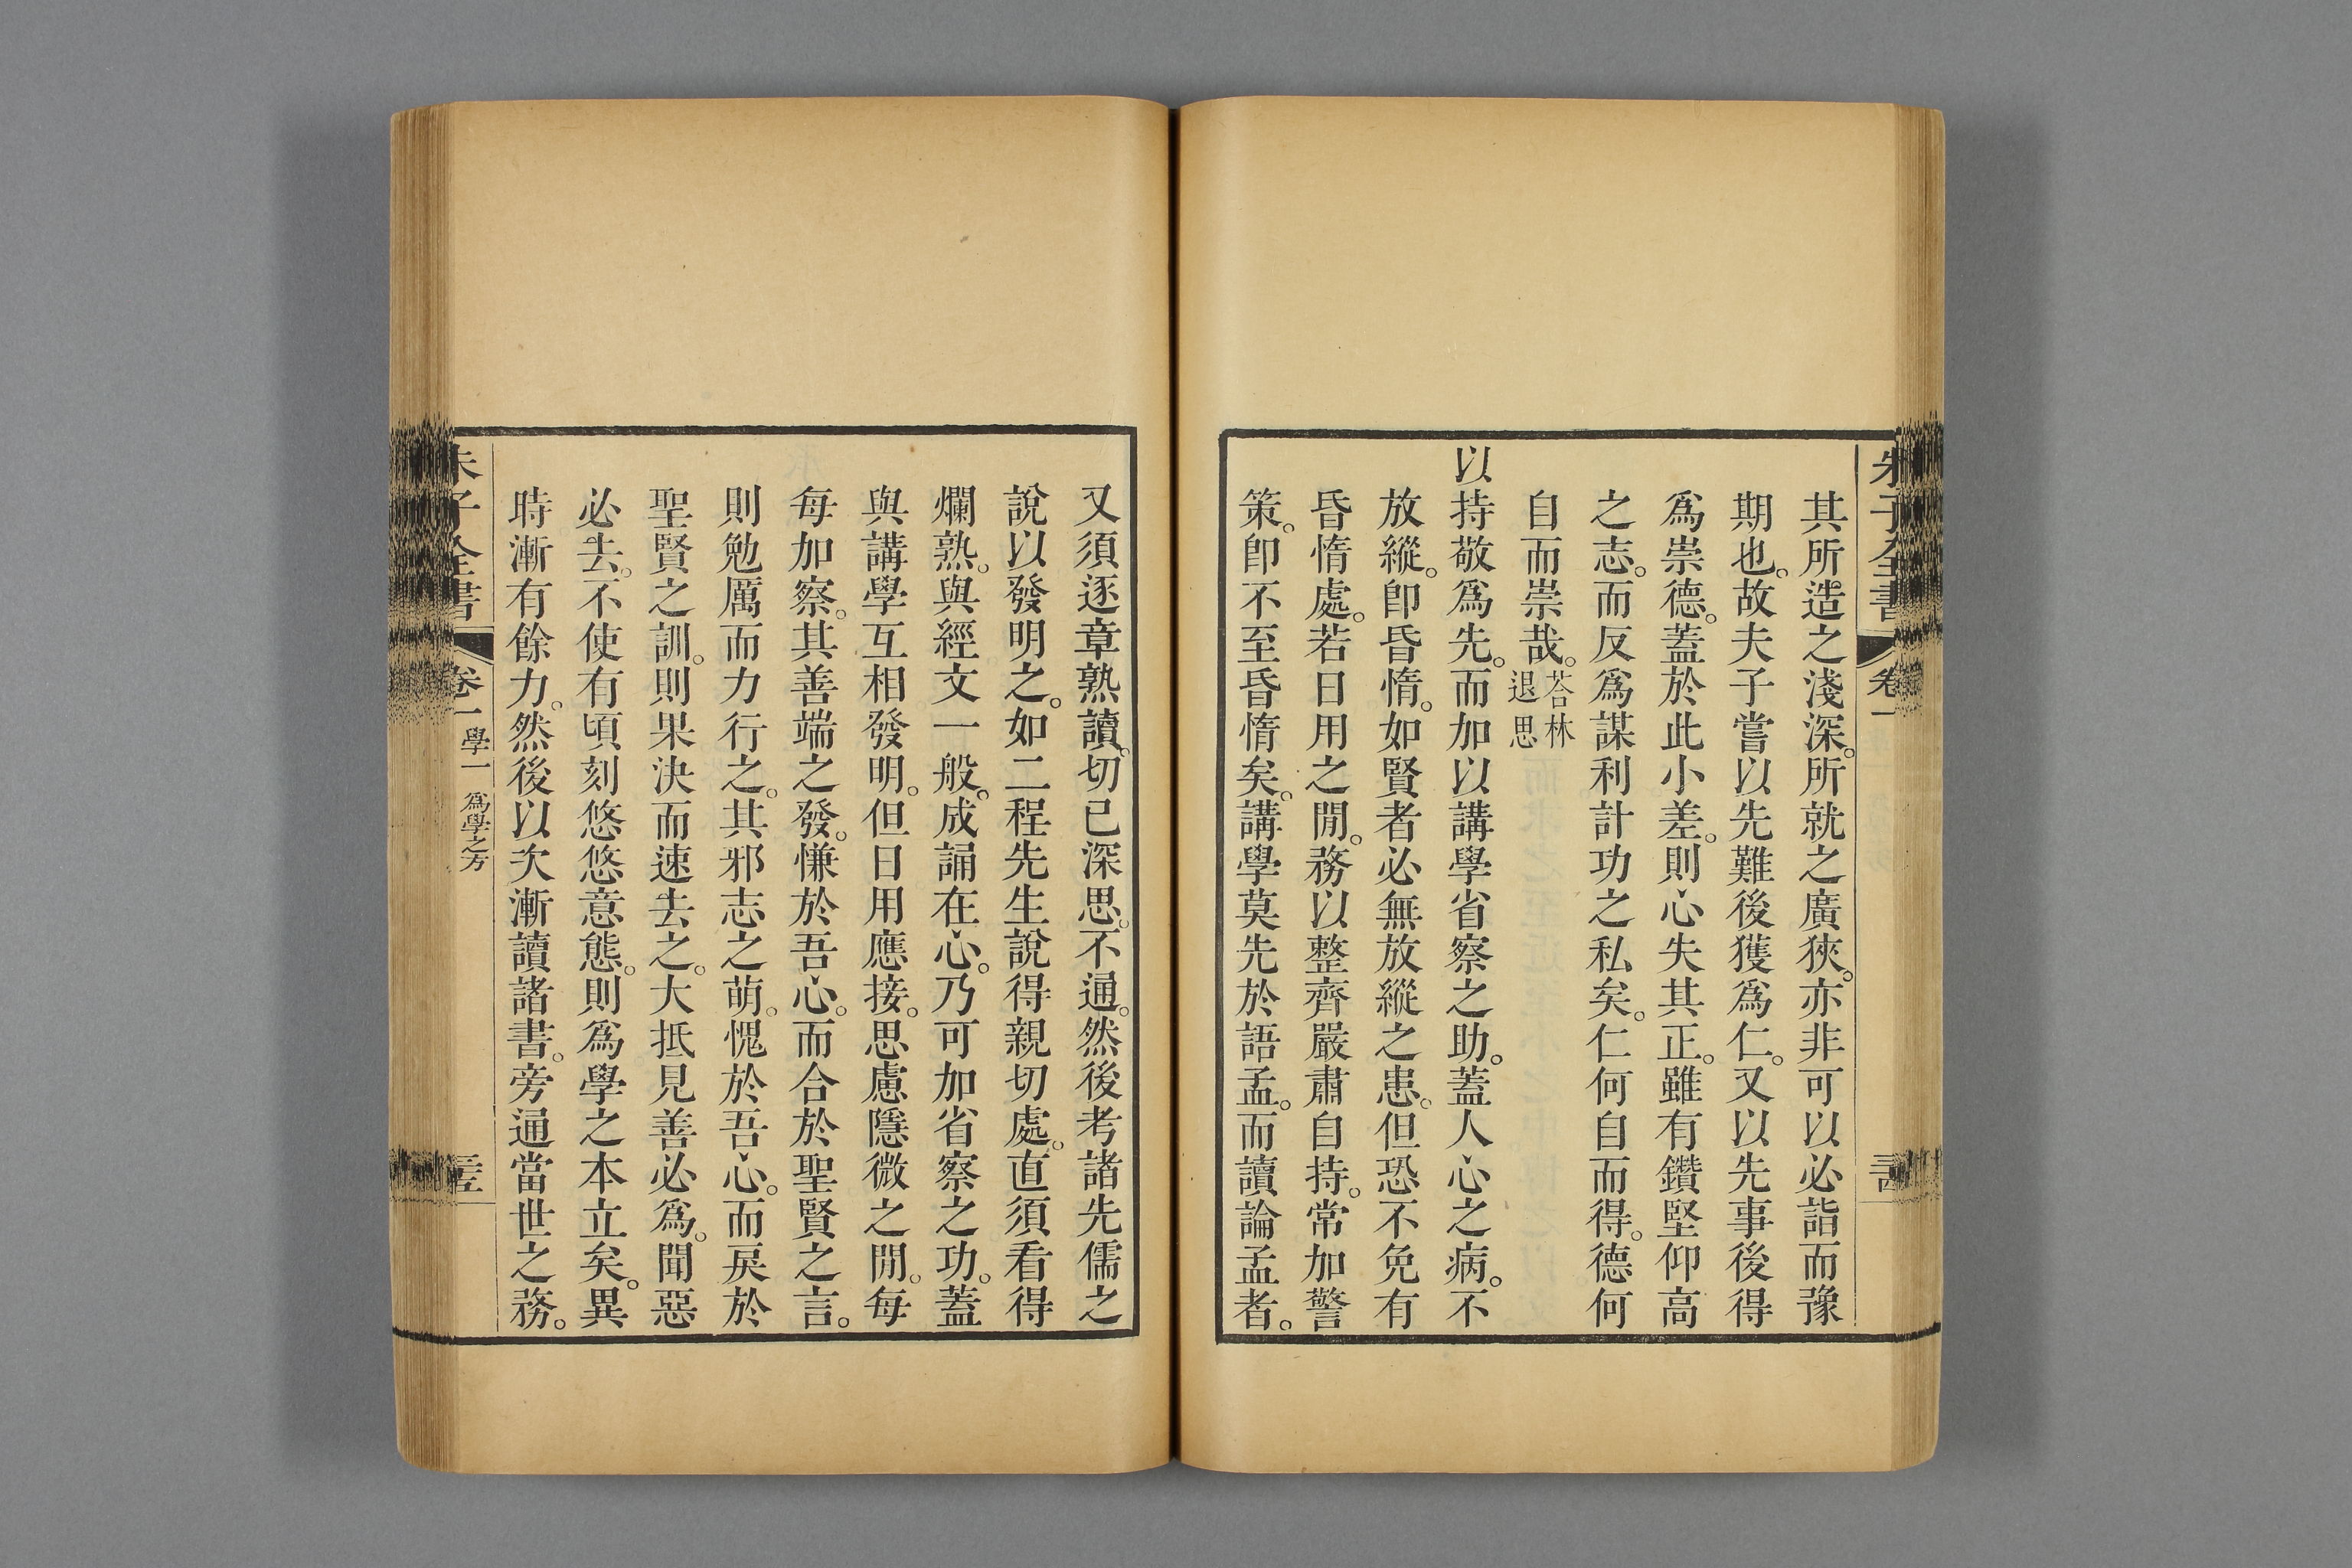 朱子全書 卷一
其所造之淺深。所就之廣狹。亦非可以必詣而豫
期也。故夫子嘗以先難後獲爲仁。又以先事後得
爲崇德。蓋於此小差。則心失其正。雖有鑽堅仰高
之志。而反爲謀利計功之私矣。仁何自而得。德何
自而崇哉。荅林退思
以持敬爲先。而加以講學省察之助。蓋人心之病。不
放縱。卽昏惰。如賢者必無放縱之患。但恐不免有
昏惰處。若日用之閒。務以整齊嚴肅自持。常加警
策。卽不至昏惰矣。講學莫先於語孟。而讀論孟者。
又須逐章熟讀。切已深思。不通。然後考諸先儒之
說以發明之。如二程先生說得親切處。直須看得
爛熟。與經文一般。成誦在心。乃可加省察之功。蓋
與講學互相發明。但日用應接。思慮隱微之閒。每
每加察。其善端之發。慊於吾心。而合於聖賢之言。
則勉厲而力行之。其邪志之萌。愧於吾心。而戾於
聖賢之訓。則果決而速去之。大抵見善必爲。聞惡
必去。不使有頃刻悠悠意態。則爲學之本立矣。異
時漸有餘力。然後以次漸讀諸書。旁通當世之務。
朱子全書 卷一 學一 爲學之方